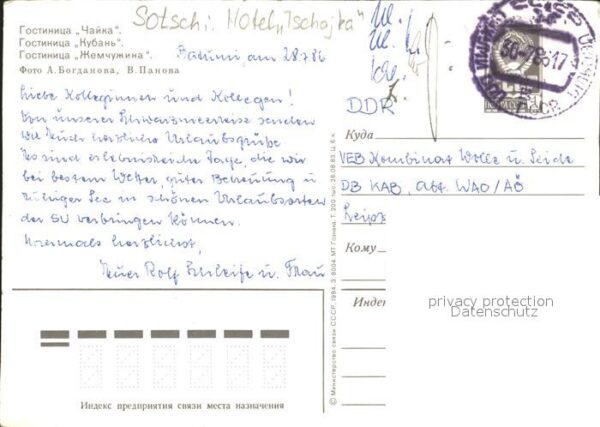 Sotschi: Hotel „Tschajka"
Гостиница „Чайка".
Гостиница „Кубань".
Гостиница „Жемчужина".
Фото А. Богданова, В. Панова
Batumi, am 28.7.86
Liebe Kolleginnen und Kollegen!
Von unserer Schwarzmeerreise senden
wir Euch herzliche Urlaubsgrüße
Es sind erlebnisreiche Tage, die wir
bei bestem Wetter, guter Betreuung u
ruhiger See in schönen Urlaubsorten
der SU verbringen können.
Nochmals herzlichst,
Euer Rolf u. Frau
Индекс предприятия связи места назначения
© Министерство связи СССР, 1984. З. 8004. МТ Гознака. Т. 200 тыс. 26.08.83. Ц. 6 к.
30 -7 86 17
DDR
Куда
VEB Kombinat Wolle u. Seide
DB KAB, Abt. WAO/AÖ
Leipz
Кому
Индек
privacy protection
Datenschutz